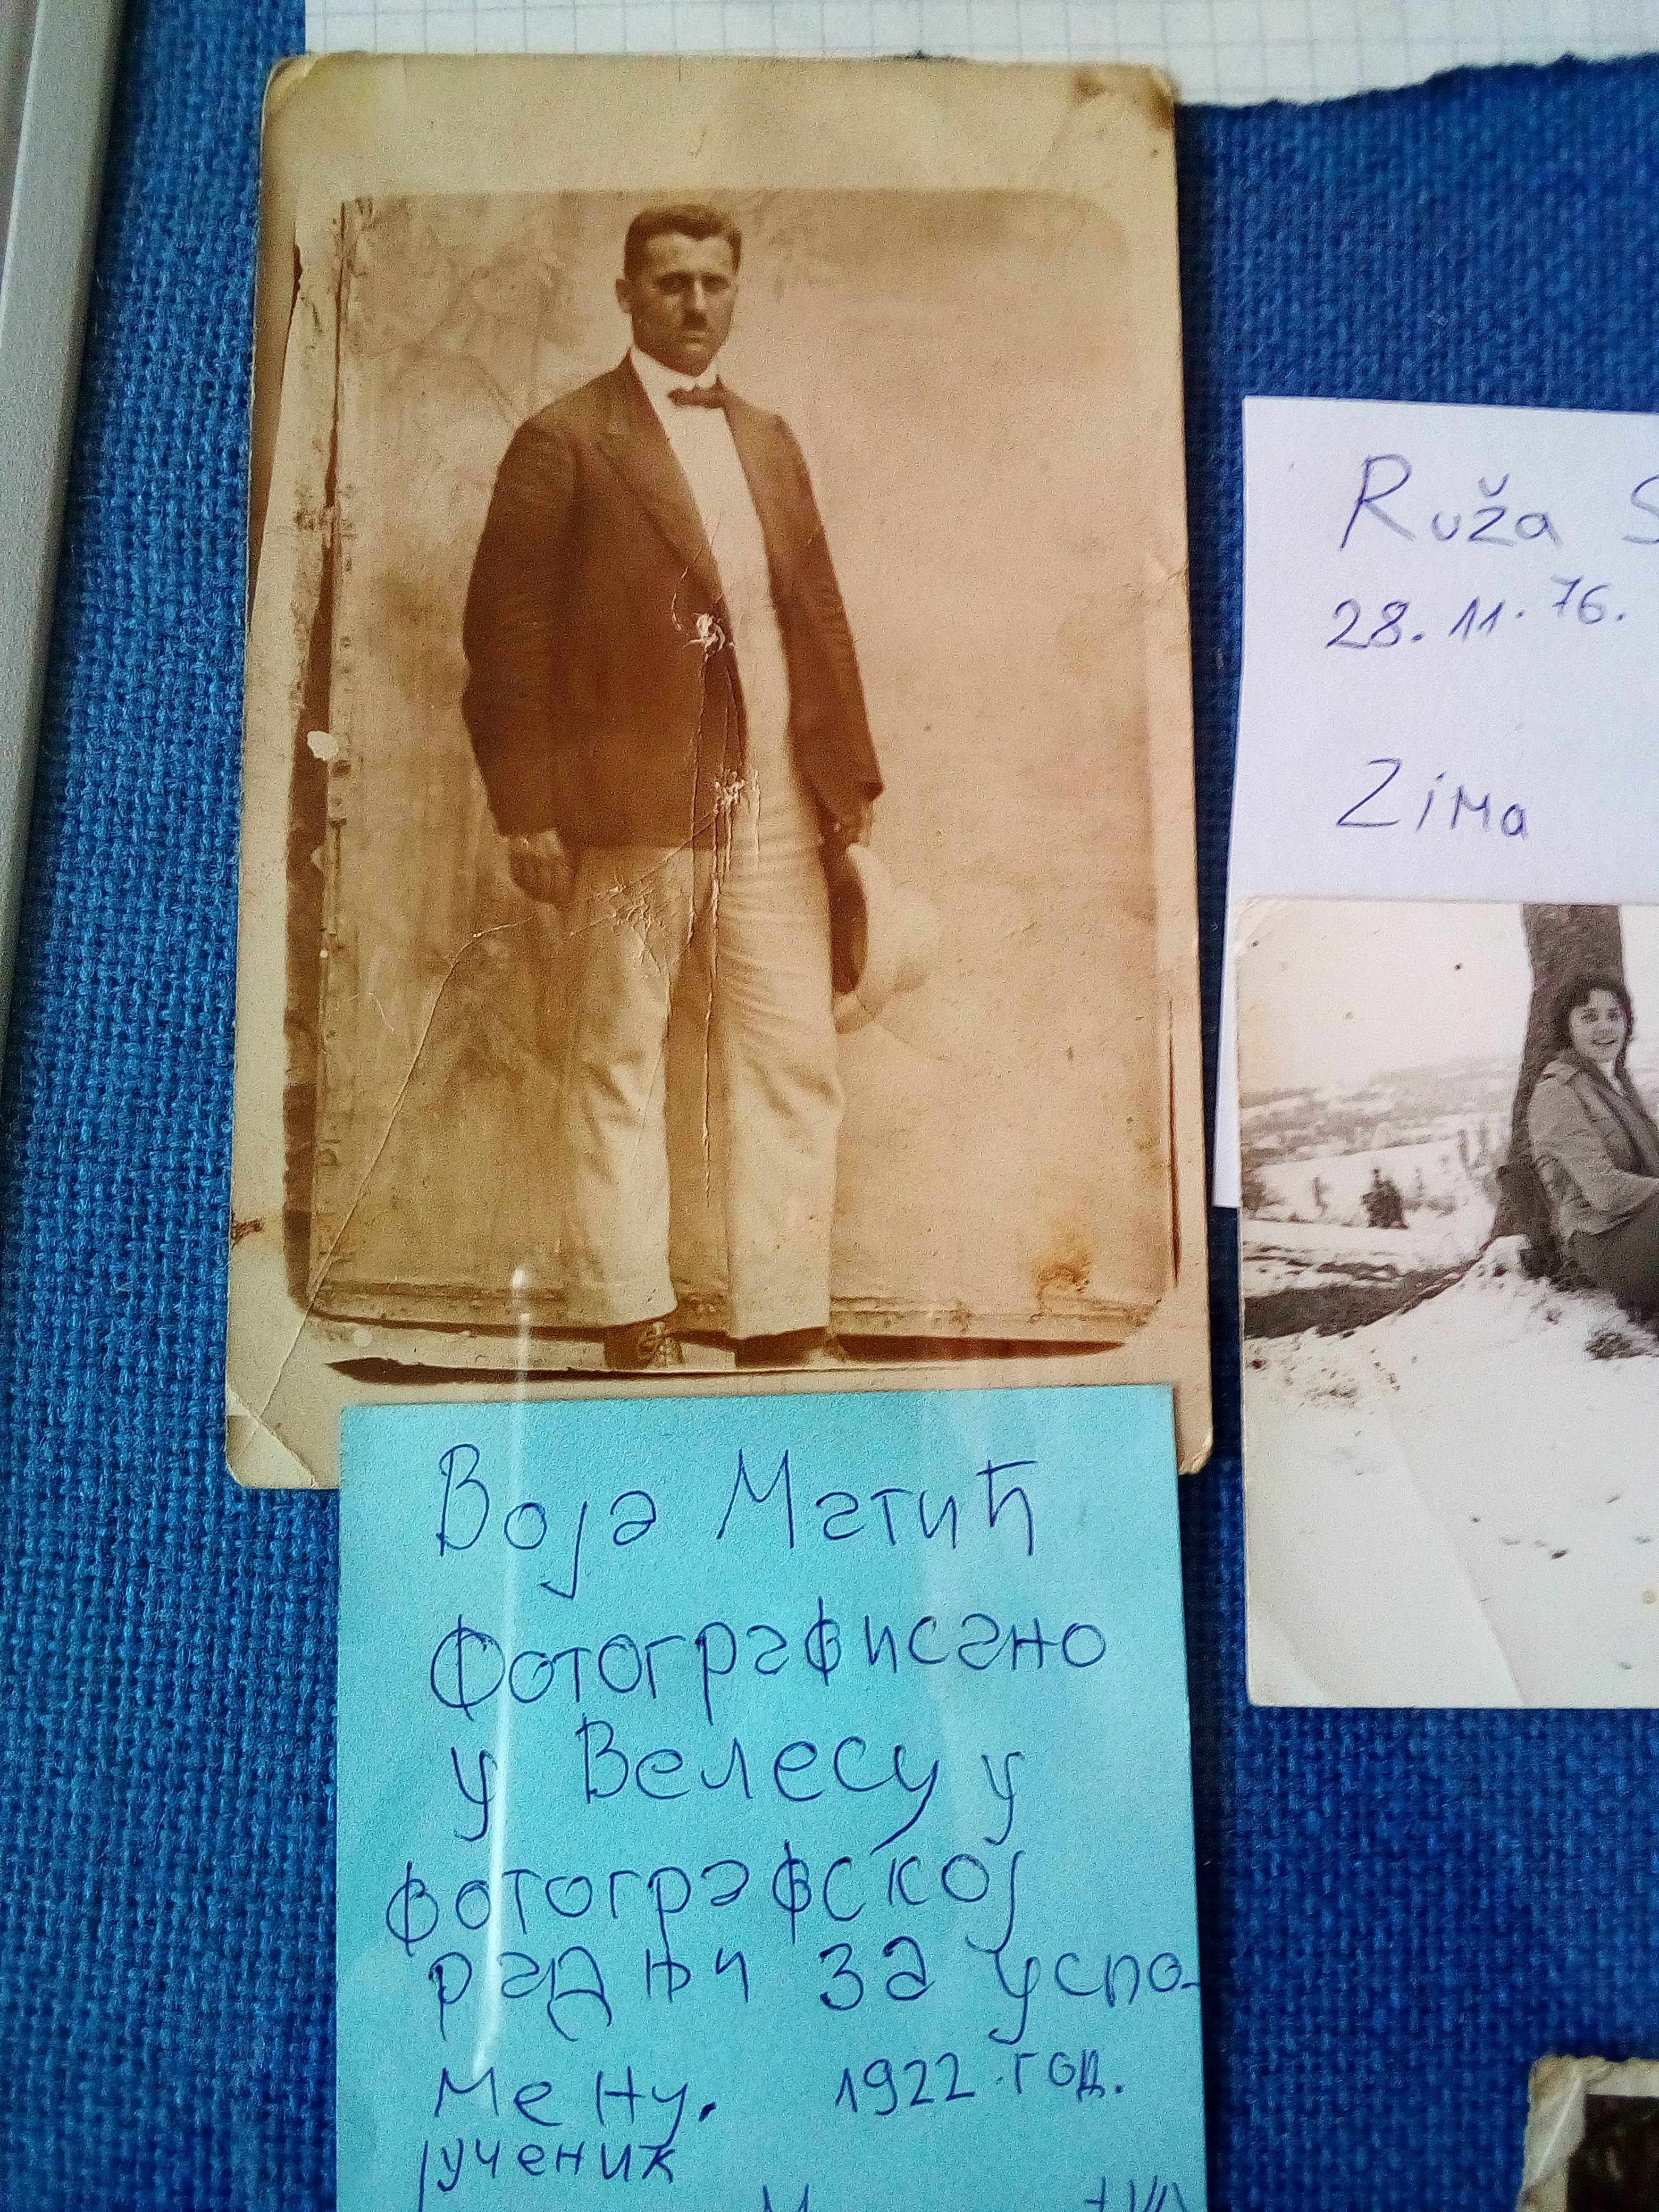 Воја Матић
Фотографисано
у Велесу у
фотографској
радњи за успо-
мену. 1922. год.
ученик
Ruža
28. 11. 76.
Zima